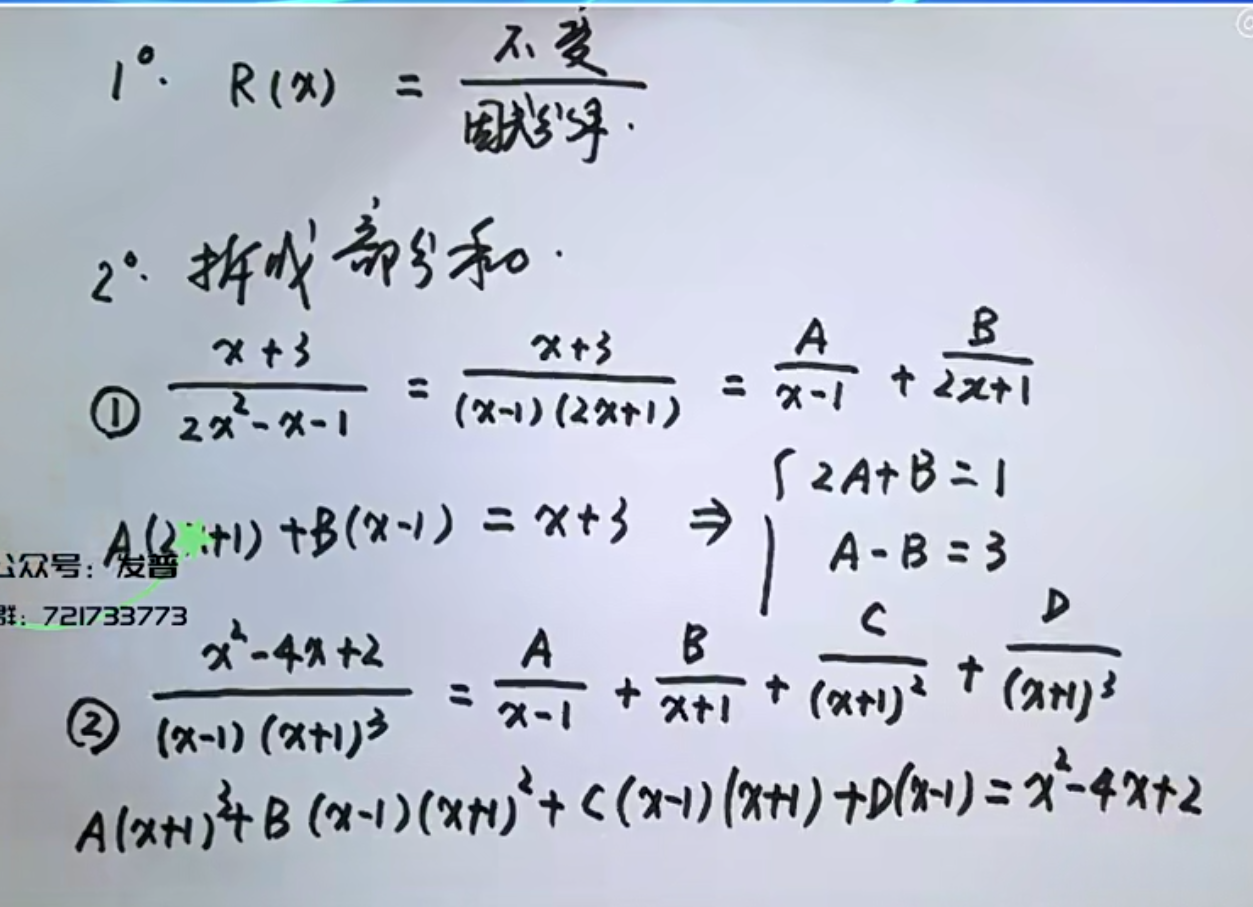 1°. R(x) = 不变 / 因式分解.
2°. 拆成部分和.
① (x+3)/(2x²-x-1) = (x+3)/((x-1)(2x+1)) = A/(x-1) + B/(2x+1)
A(2x+1)+B(x-1) = x+3 ⇒ { 2A+B=1
A-B=3
公众号：发普
群：721733773
② (x²-4x+2)/((x-1)(x+1)³) = A/(x-1) + B/(x+1) + C/(x+1)² + D/(x+1)³
A(x+1)³+B(x-1)(x+1)²+C(x-1)(x+1)+D(x-1)=x²-4x+2